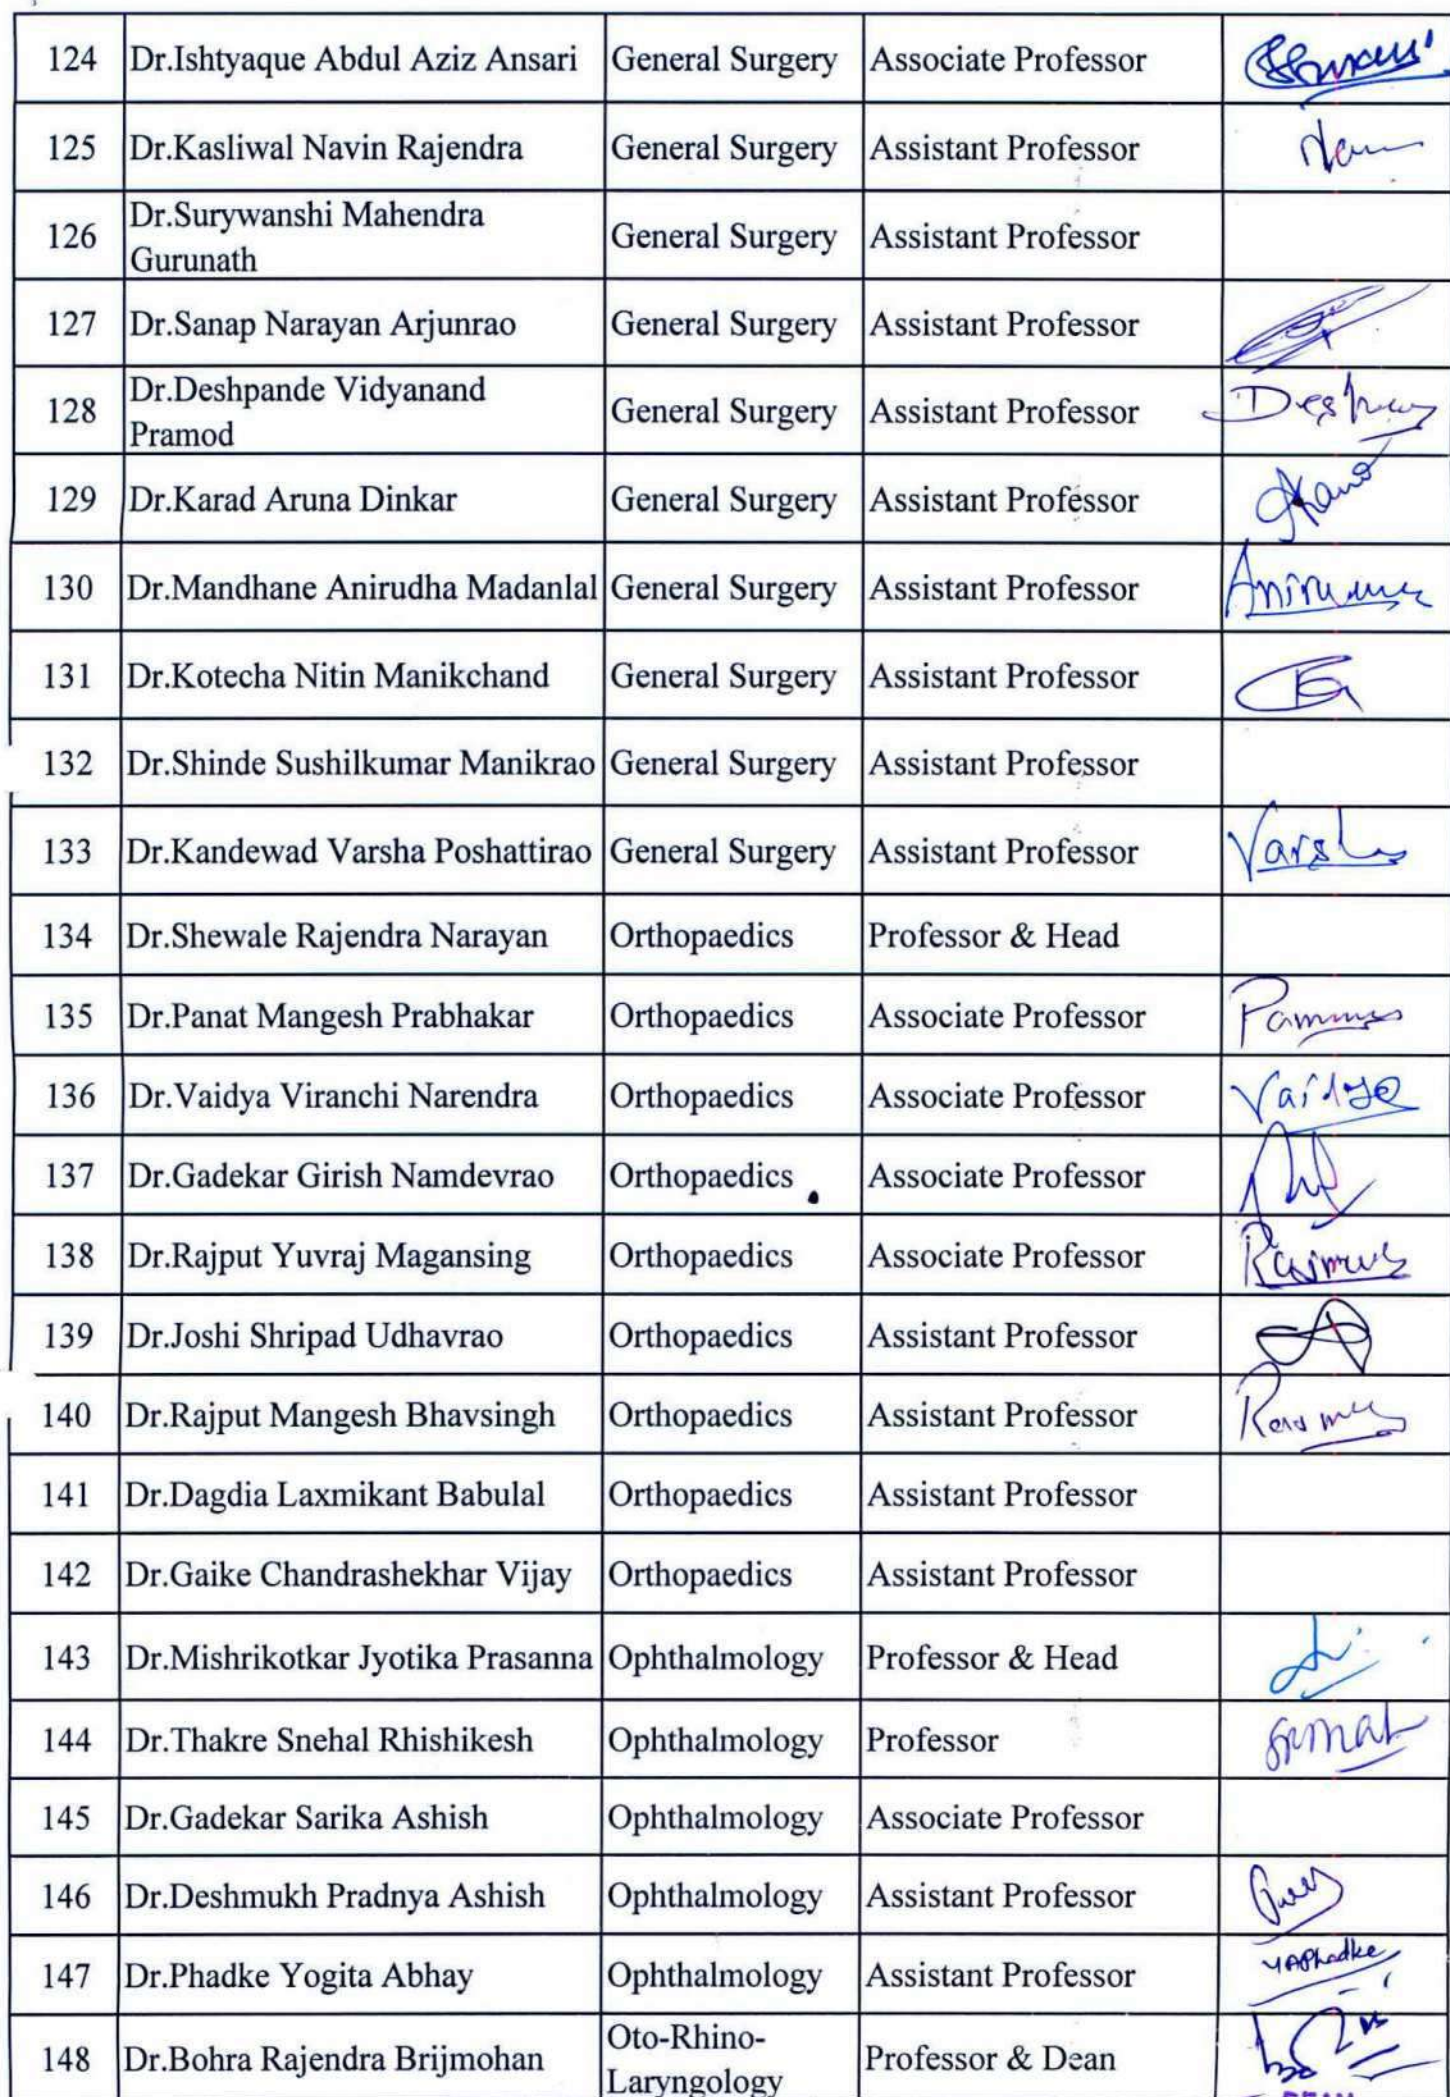 124 Dr.Ishtyaque Abdul Aziz Ansari General Surgery Associate Professor
125 Dr.Kasliwal Navin Rajendra General Surgery Assistant Professor
126 Dr.Surywanshi Mahendra Gurunath General Surgery Assistant Professor
127 Dr.Sanap Narayan Arjunrao General Surgery Assistant Professor
128 Dr.Deshpande Vidyanand Pramod General Surgery Assistant Professor
129 Dr.Karad Aruna Dinkar General Surgery Assistant Professor
130 Dr.Mandhane Anirudha Madanlal General Surgery Assistant Professor
131 Dr.Kotecha Nitin Manikchand General Surgery Assistant Professor
132 Dr.Shinde Sushilkumar Manikrao General Surgery Assistant Professor
133 Dr.Kandewad Varsha Poshattirao General Surgery Assistant Professor
134 Dr.Shewale Rajendra Narayan Orthopaedics Professor & Head
135 Dr.Panat Mangesh Prabhakar Orthopaedics Associate Professor
136 Dr.Vaidya Viranchi Narendra Orthopaedics Associate Professor
137 Dr.Gadekar Girish Namdevrao Orthopaedics Associate Professor
138 Dr.Rajput Yuvraj Magansing Orthopaedics Associate Professor
139 Dr.Joshi Shripad Udhavrao Orthopaedics Assistant Professor
140 Dr.Rajput Mangesh Bhavsingh Orthopaedics Assistant Professor
141 Dr.Dagdia Laxmikant Babulal Orthopaedics Assistant Professor
142 Dr.Gaike Chandrashekhar Vijay Orthopaedics Assistant Professor
143 Dr.Mishrikotkar Jyotika Prasanna Ophthalmology Professor & Head
144 Dr.Thakre Snehal Rhishikesh Ophthalmology Professor
145 Dr.Gadekar Sarika Ashish Ophthalmology Associate Professor
146 Dr.Deshmukh Pradnya Ashish Ophthalmology Assistant Professor
147 Dr.Phadke Yogita Abhay Ophthalmology Assistant Professor YAPhadke
148 Dr.Bohra Rajendra Brijmohan Oto-Rhino-Laryngology Professor & Dean